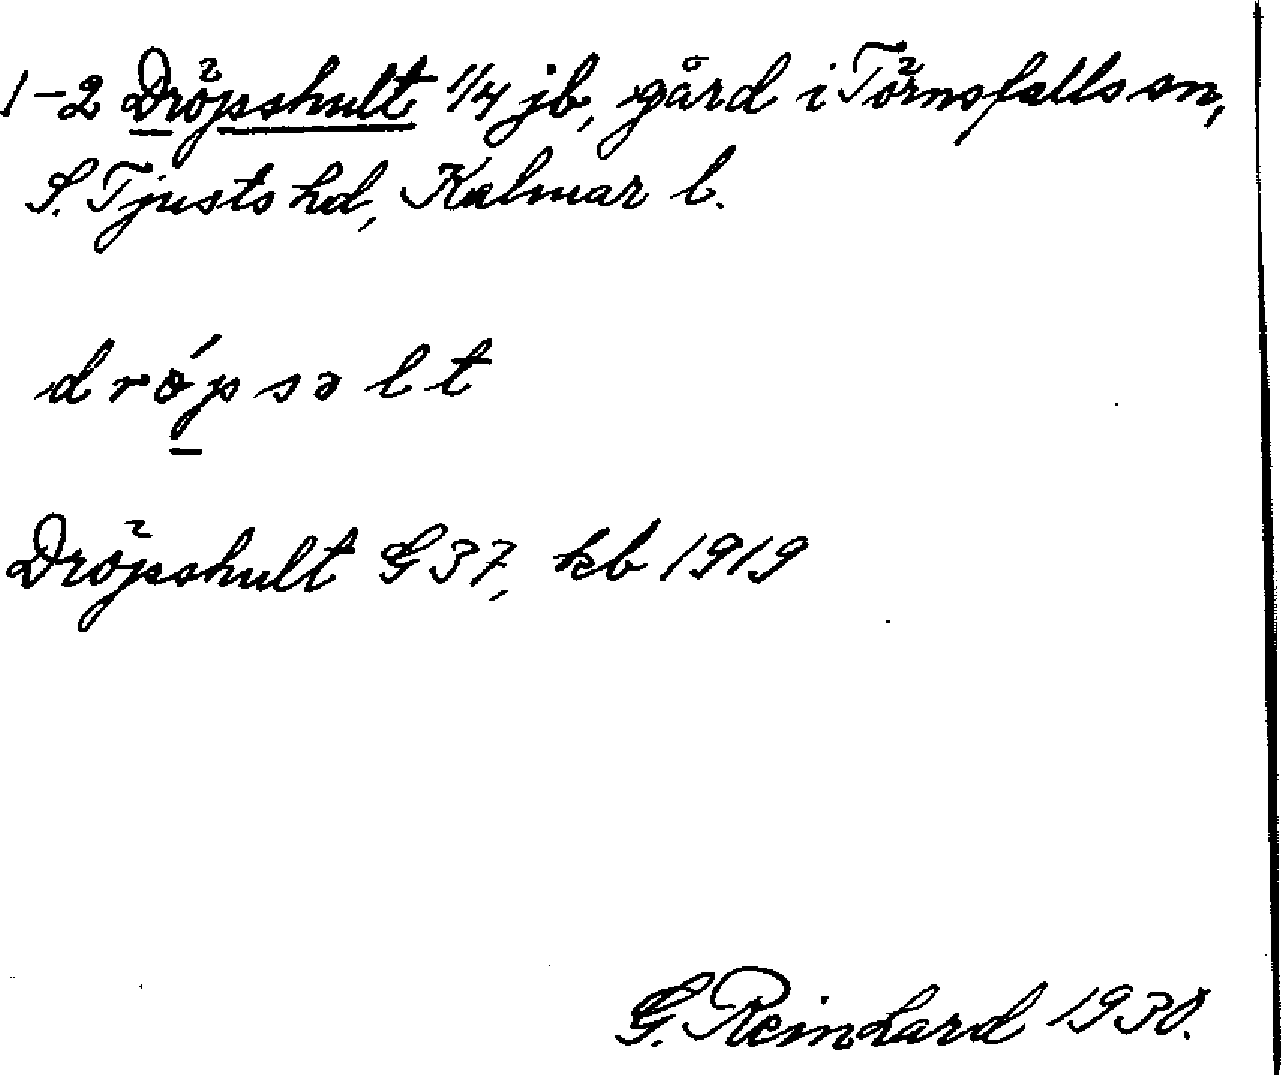 1-2 Dröpshult 1/4 jb, gård i Törnsfalls sn,
S. Tjusts hd, Kalmar l.
drǿpsəlt
Dröpshult G 37, kb 1919
G. Reinhard 1930.